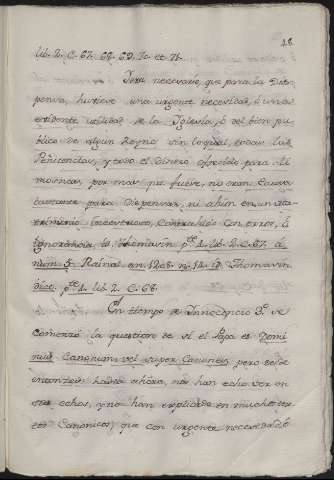 28
lib. 2. C. 67. 68. 69. 70. et 71.
Sera necesario, que para la Dis-
pensa, huviese una urgente necesidad, ó una
evidente utilidad de la Yglesia, ó del bien pu
blico de algun Reyno sin lo qual, todas las
Penitencias, y todo el dinero ofrecido para Li
mosnas, por mas que fuese, no eran Causa
bastante para Dispensar, ni ahún en un Ma-
trimonio incestuoso, Contrahido con error, ó
ignorancia, Thomasin pte. 4. lib. 2. C. 67. á
num. 5. Rainal. an. 1208. n. 14. Thomasin
dict. pte. 4. lib. 2. C. 68.
En tiempo de Innocencio 3º. se
Comenzó la question de si el Papa es Domi
nus Canonum, vel super Canones, pero desde
entonces hasta ahora, nos han echo ver en
sus echos, y nos han explicado en muchos tex
tos Canonicos, que con urgente necesidad, ó